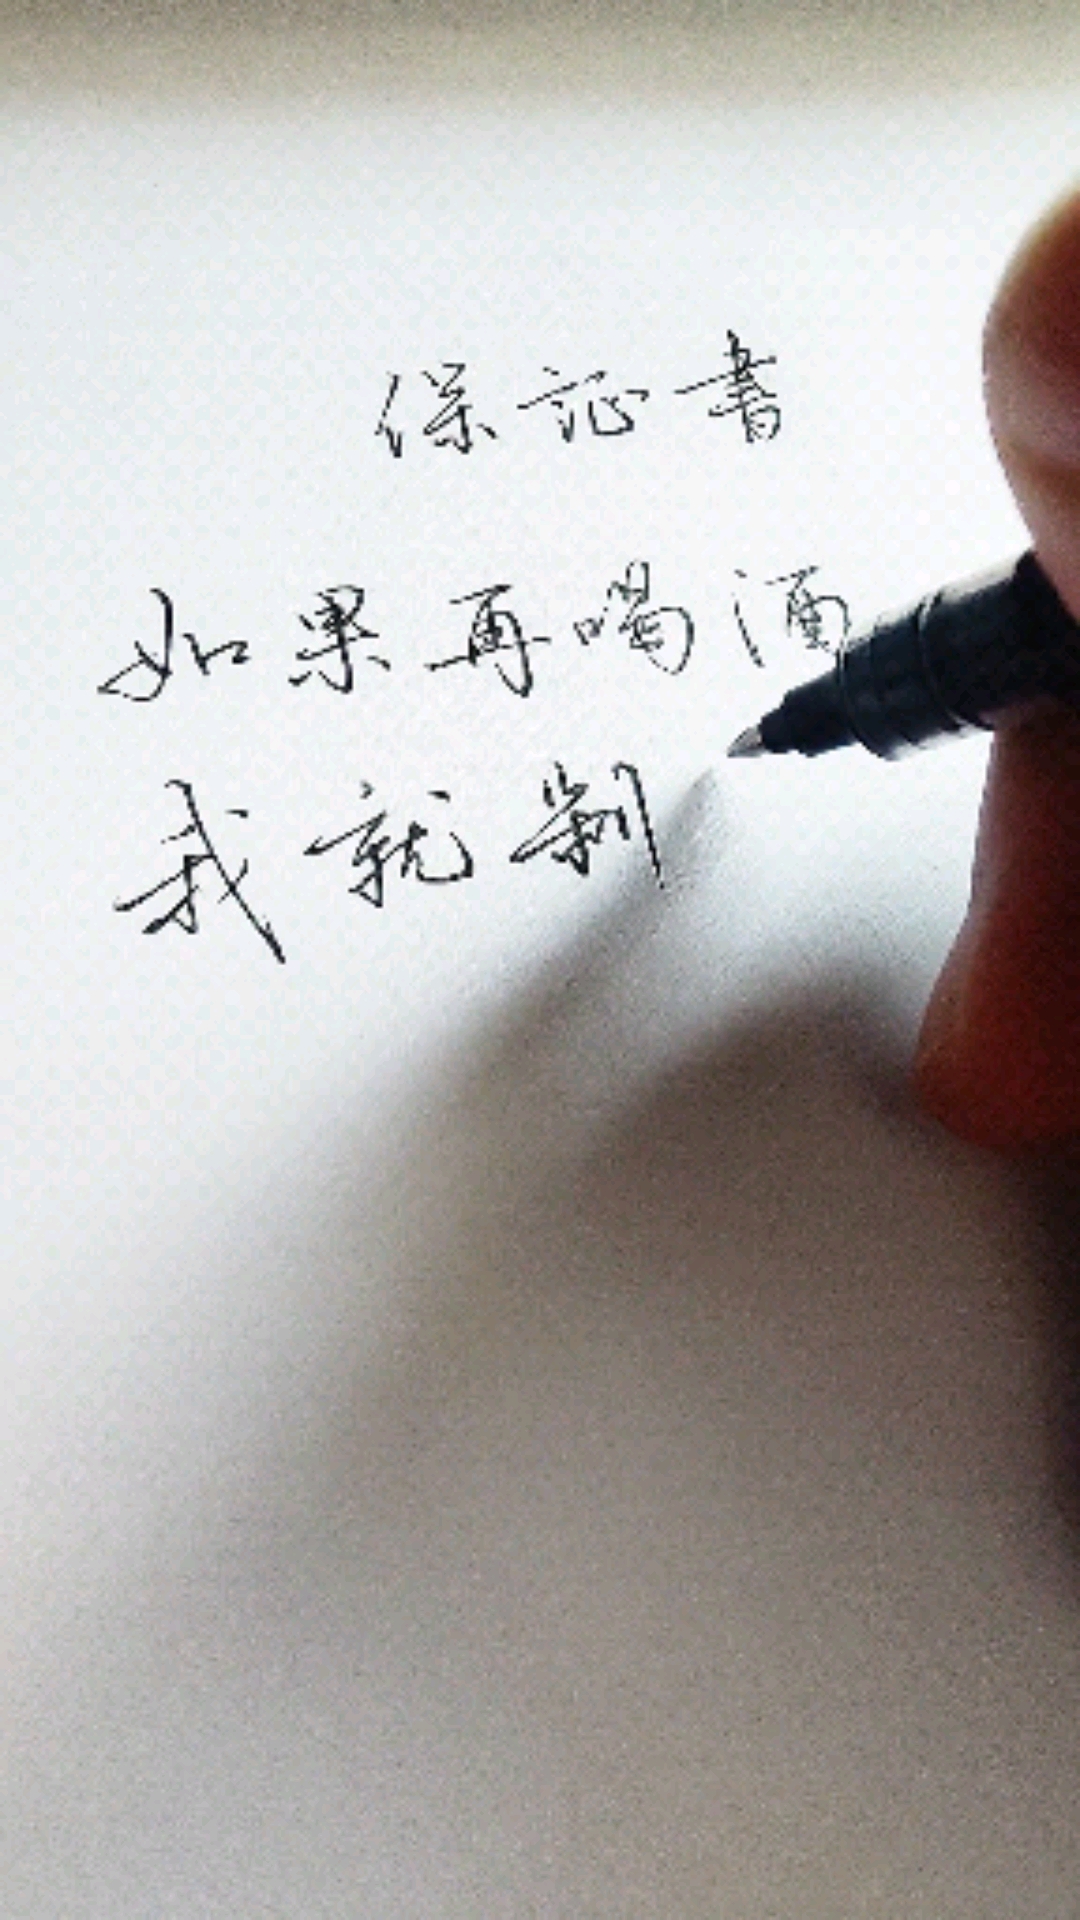 保证書
如果再喝酒
我就剁